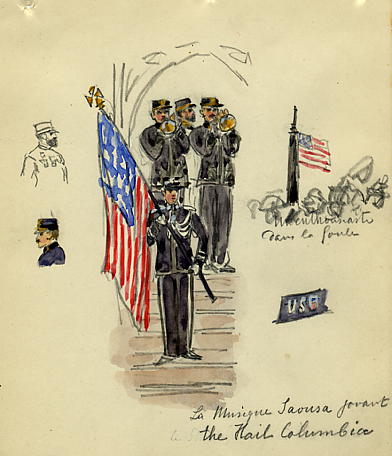 un enthousiaste
dans la foule
US
La Musique Saousa jouant
the Hail Columbia